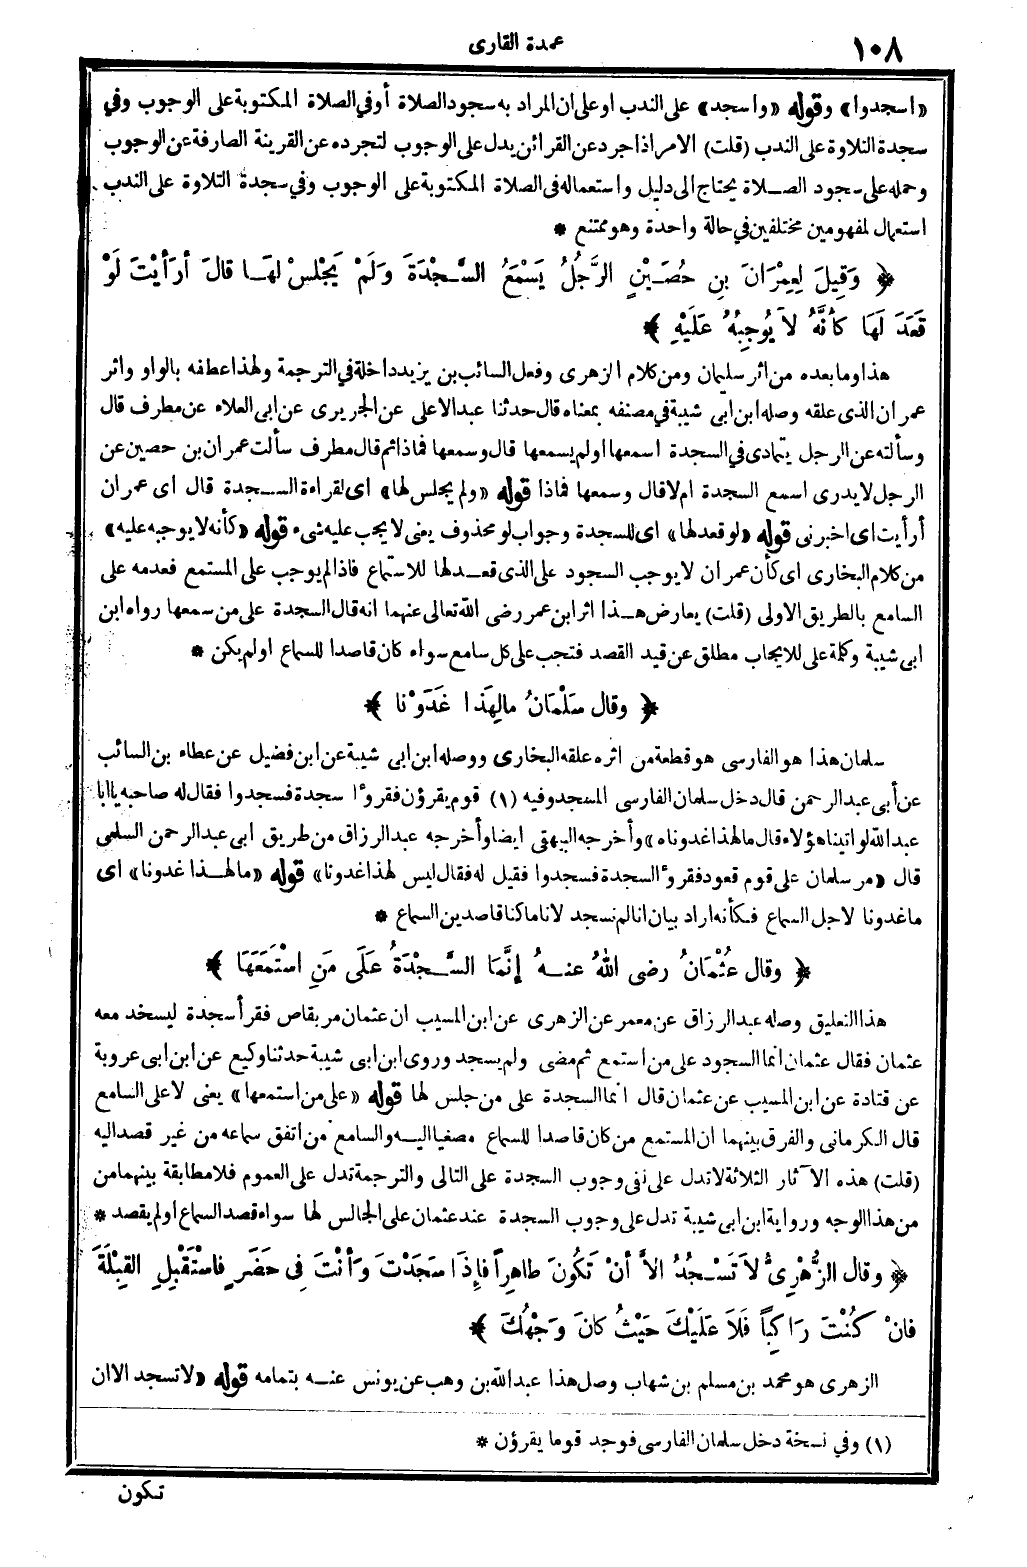 ١٠٨
عمدة القارى
«اسجدوا» وقوله «واسجد» على الندب او على ان المراد به سجود الصلاة أو في الصلاة المكتوبة على الوجوب وفي
سجدة التلاوة على الندب (قلت) الامر اذا جرد عن القرائن يدل على الوجوب لتجرده عن القرينة الصارفة عن الوجوب
وحمله على سجود الصلاة يحتاج الى دليل واستعماله فى الصلاة المكتوبة على الوجوب وفي سجدة التلاوة على الندب
استعمال لمفهومين مختلفين في حالة واحدة وهو ممتنع *
﴿ وَقِيلَ لِعِمْرَانَ بنِ حُصَيْنٍ الرَّجُلُ يَسْمَعُ السَّجْدَةَ وَلَمْ يَجْلِسْ لَهَا قالَ أرَأيْتَ لَوْ
قَعَدَ لَهَا كأنَّهُ لاَ يُوجِبُهُ عَلَيْهِ ﴾
هذا وما بعده من اثر سليمان ومن كلام الزهرى وفعل السائب بن يزيد داخلة في الترجمة ولهذا عطفه بالواو واثر
عمران الذى علقه وصله ابن ابى شيبة في مصنفه بمعناه قال حدثنا عبد الاعلى عن الجريرى عن ابى العلاء عن مطرف قال
وسألته عن الرجل يتمادى في السجدة اسمعها اولم يسمعها قال وسمعها فماذا ثم قال مطرف سألت عمران بن حصين عن
الرجل لا يدرى اسمع السجدة ام لا قال وسمعها فماذا قوله «ولم يجلس لها» اى لقراءة السجدة قال اى عمران
أرأيت اى اخبرنى قوله «لو قعد لها» اى للسجدة وجواب لو محذوف يعنى لا يجب عليه شىء قوله «كأنه لا يوجبه عليه»
من كلام البخارى اى كأن عمران لا يوجب السجود على الذى قعد لها للاستماع فاذا لم يوجب على المستمع فعدمه على
السامع بالطريق الاولى (قلت) يعارض هذا اثر ابن عمر رضى الله تعالى عنهما انه قال السجدة على من سمعها رواه ابن
ابى شيبة وكلمة على للايجاب مطلق عن قيد القصد فتجب على كل سامع سواء كان قاصدا للسماع اولم يكن *
﴿ وقال سَلْمَانُ مالِهَذَا غَدَوْنا ﴾
سلمان هذا هو الفارسى هو قطعة من اثره علقه البخارى ووصله ابن ابى شيبة عن ابن فضيل عن عطاء بن السائب
عن أبى عبد الرحمن قال دخل سلمان الفارسى المسجد وفيه (١) قوم يقرؤن فقرؤا سجدة فسجدوا فقال له صاحبه يا ابا
عبد الله لو اتينا هؤلاء قال ما لهذا غدوناه» وأخرجه البيهقى ايضا وأخرجه عبد الرزاق من طريق ابى عبد الرحمن السلمى
قال «مر سلمان على قوم قعود فقرؤا السجدة فسجدوا فقيل له فقال ليس لهذا غدونا» قوله «ما لهذا غدونا» اى
ما غدونا لاجل السماع فكأنه اراد بيان انا لم نسجد لانا ما كنا قاصدين السماع *
﴿ وقال عُثْمَانُ رضى اللهُ عنهُ إنَّمَا السَّجْدَةُ عَلَى مَنِ اسْتَمَعَهَا ﴾
هذا التعليق وصله عبد الرزاق عن معمر عن الزهرى عن ابن المسيب ان عثمان مر بقاص فقرأ سجدة ليسجد معه
عثمان فقال عثمان انما السجود على من استمع ثم مضى ولم يسجد وروى ابن ابى شيبة حدثنا وكيع عن ابن ابى عروبة
عن قتادة عن ابن المسيب عن عثمان قال انما السجدة على من جلس لها قوله «على من استمعها» يعنى لا على السامع
قال الكرمانى والفرق بينهما ان المستمع من كان قاصدا للسماع مصغيا اليه والسامع من اتفق سماعه من غير قصد اليه
(قلت) هذه الآثار الثلاثة لا تدل على نفى وجوب السجدة على التالى والترجمة تدل على العموم فلا مطابقة بينهما من
من هذا الوجه ورواية ابن ابى شيبة تدل على وجوب السجدة عند عثمان على الجالس لها سواء قصد السماع اولم يقصد *
﴿ وقال الزُّهْرِىُّ لاَ تَسْجُدُ الاَّ أنْ تَكُونَ طاهِراً فإِذَا سَجَدْتَ وَأنْتَ فِى حَضَرٍ فاسْتَقْبِلِ القِبْلَةَ
فانْ كُنْتَ رَاكِباً فَلاَ عَلَيْكَ حَيْثُ كانَ وَجْهُكَ ﴾
الزهرى هو محمد بن مسلم بن شهاب وصل هذا عبد الله بن وهب عن يونس عنه بتمامه قوله «لا تسجد الا ان
(١) وفي نسخة دخل سلمان الفارسى فوجد قوما يقرؤن *
تكون